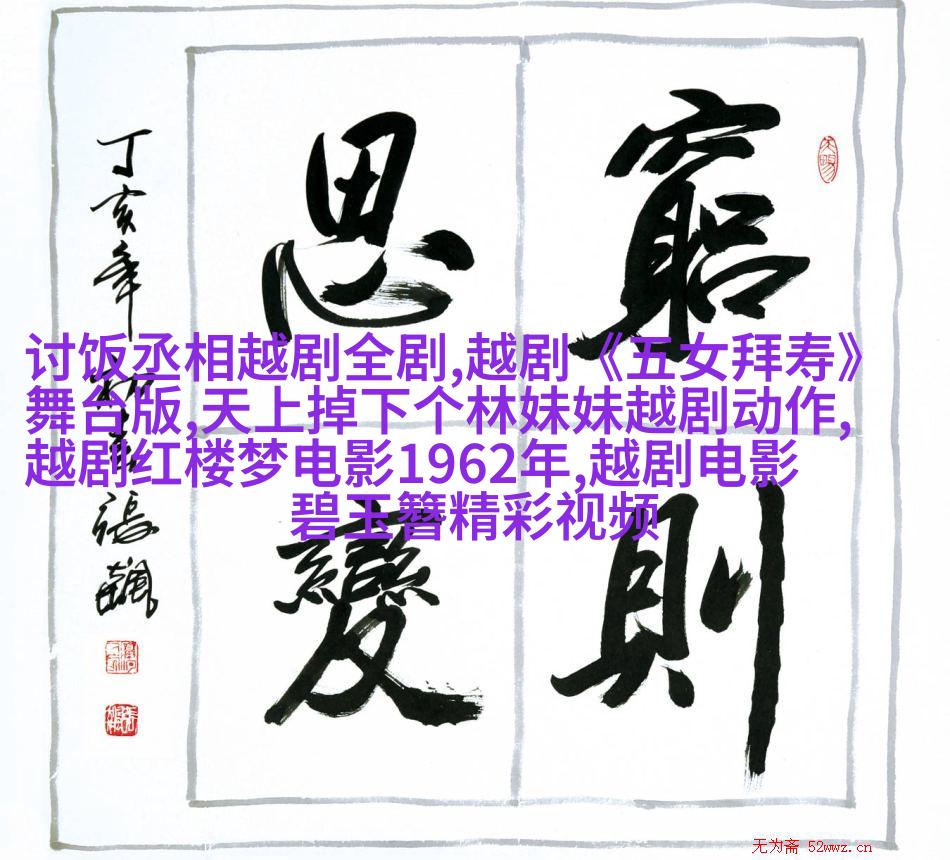 窮則
思變
丁亥年
張飆
讨饭丞相越剧全剧,越剧《五女拜寿》
舞台版,天上掉下个林妹妹越剧动作,
越剧红楼梦电影1962年,越剧电影
碧玉簪精彩视频
无为斋 52wwz.cn